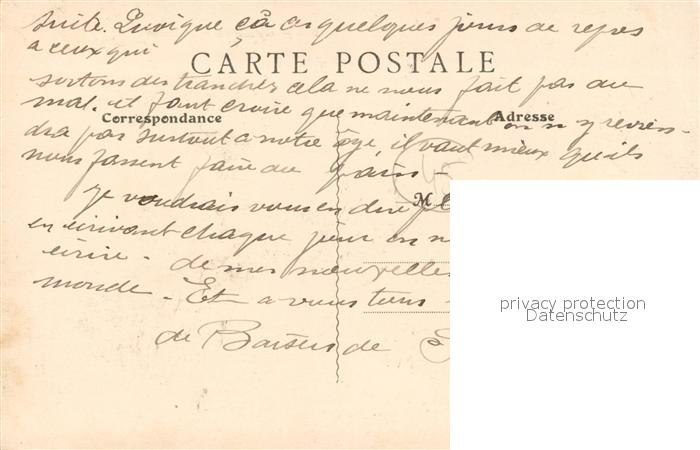 suite. Quoique ça ces quelques jours de repos
a ceux qui
CARTE POSTALE
sortons des tranchez cela ne nous fait pas du
mal. et faut croire que maintenant on n y revien-
Correspondance
Adresse
dra pas surtout a notre âge, il vaut mieux qu'ils
nous fassent faire du
je voudrais vous en dire
M
en écrivant chaque jour on n
écrire - de mes nouvelles
monde - Et a vous tous
de Baisers de
privacy protection
Datenschutz